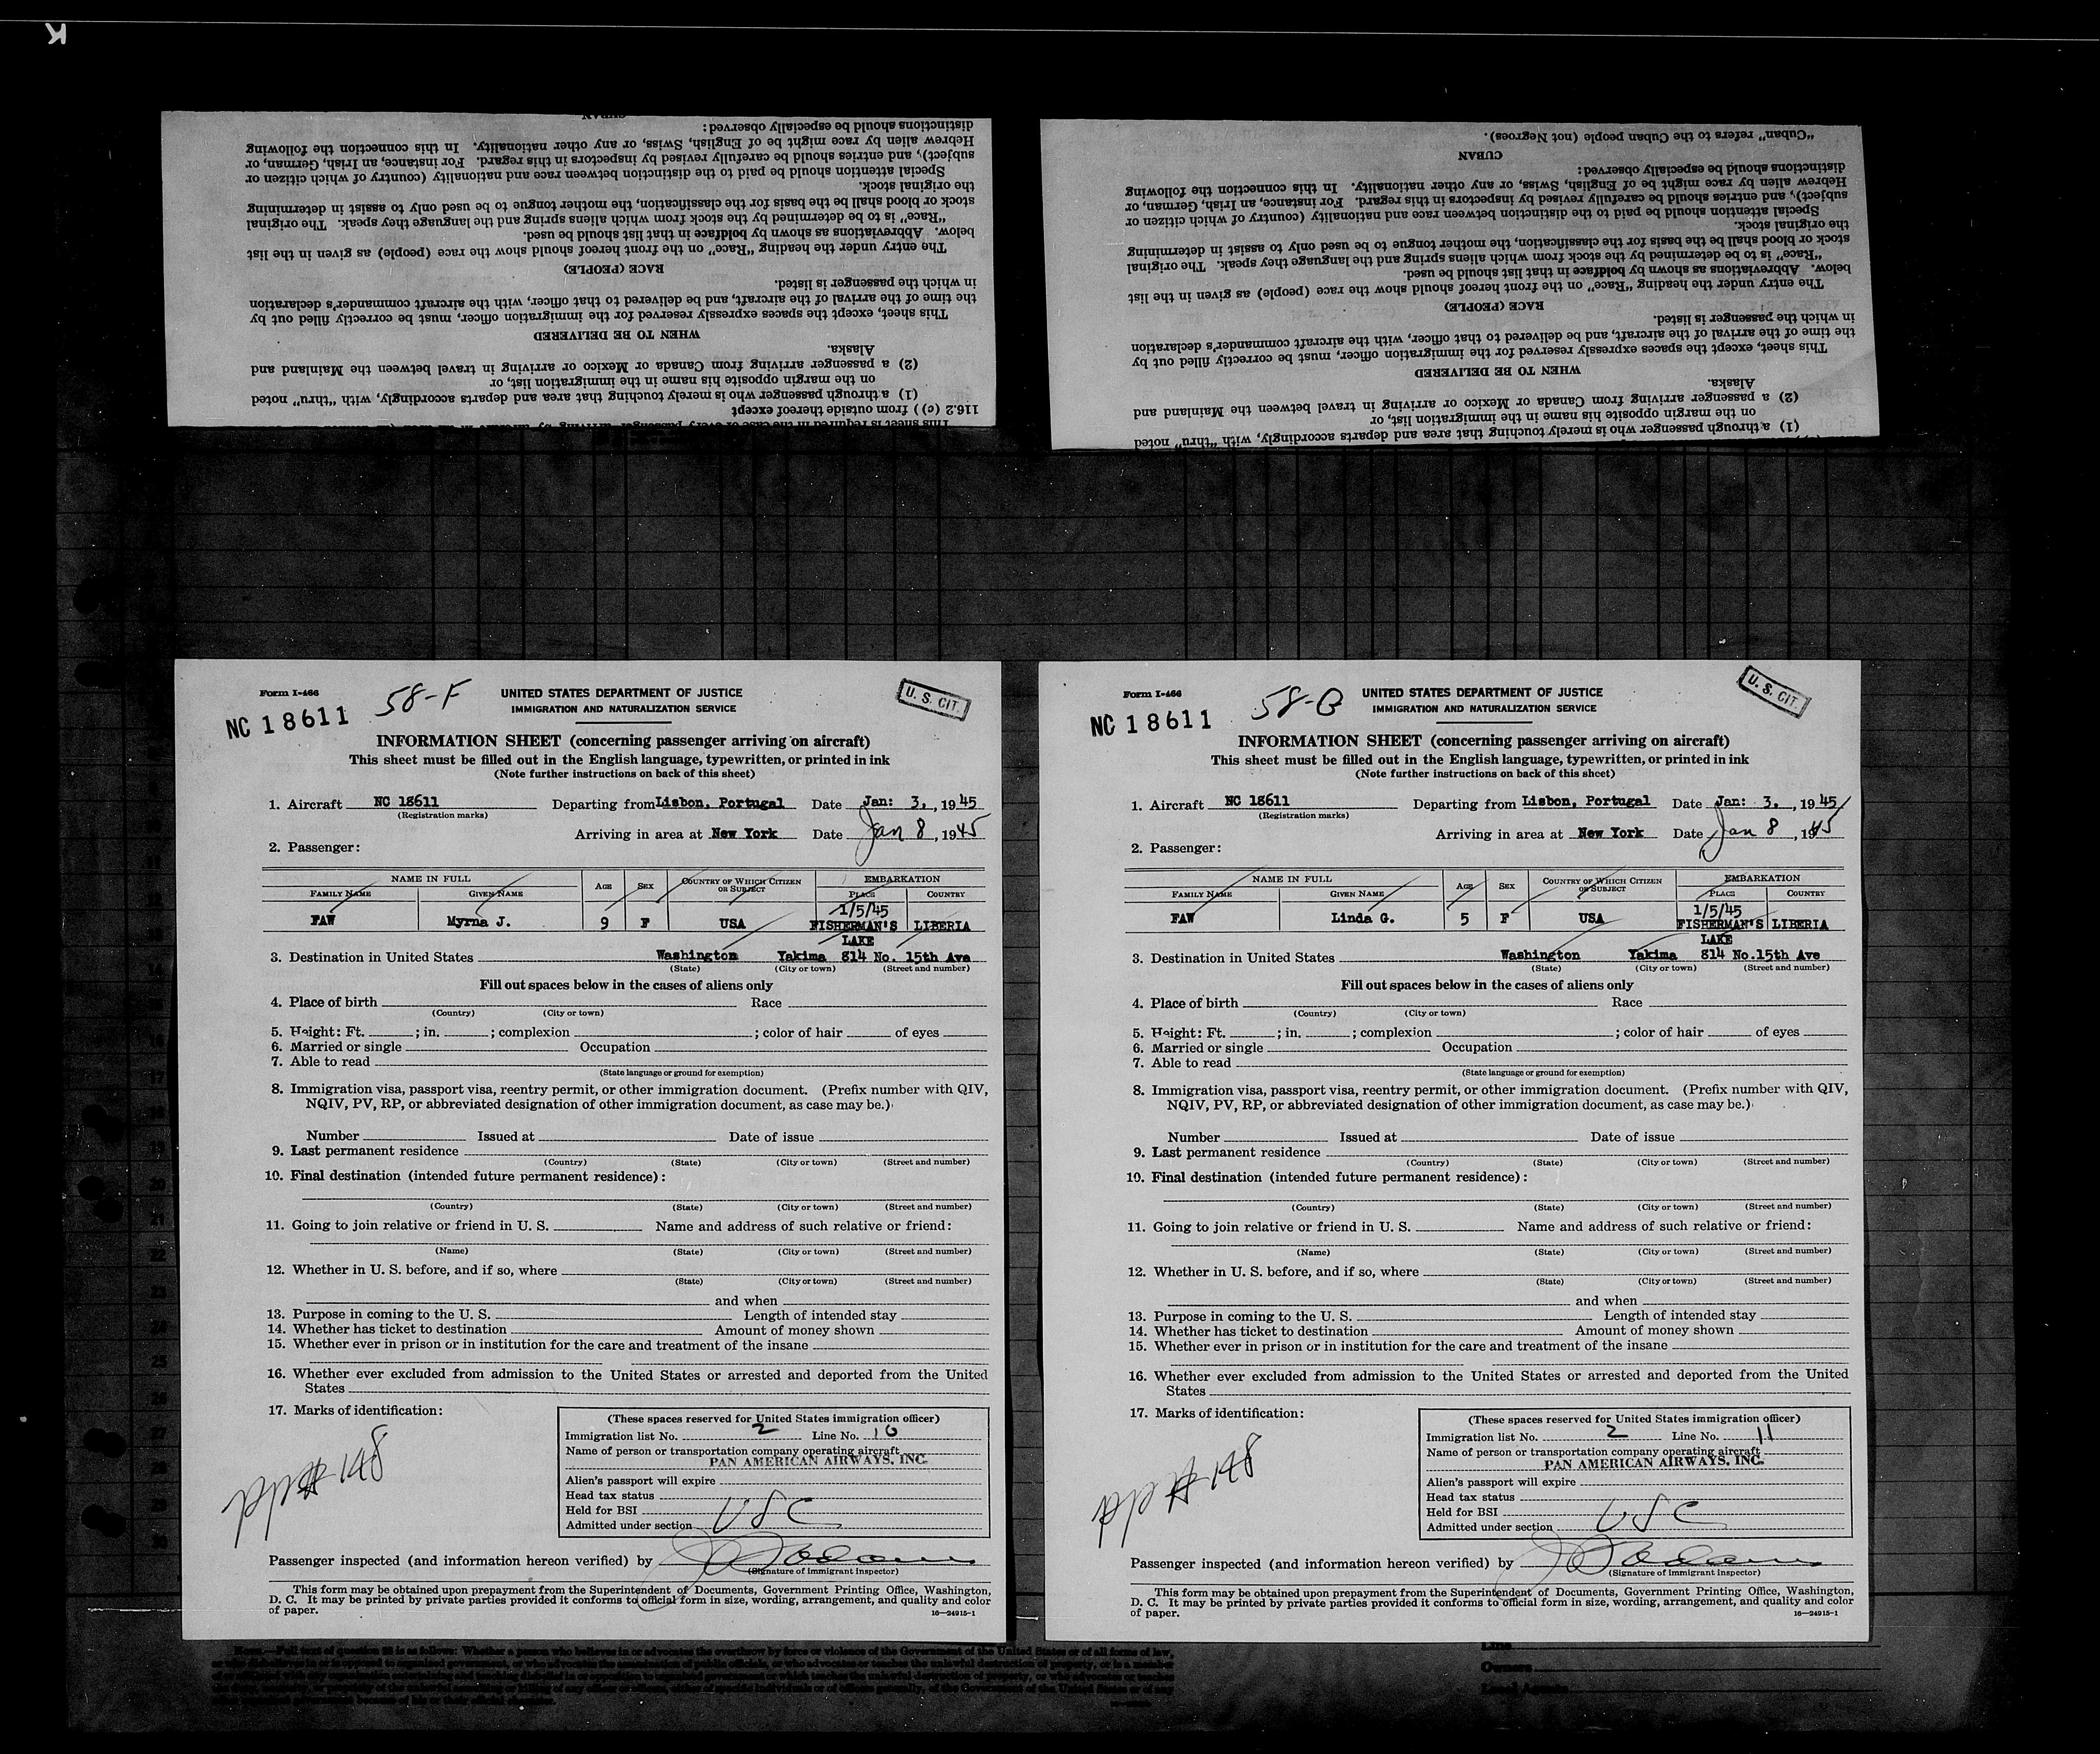 K
"Cuban" refers to the Cuban people (not Negroes).
CUBAN
distinctions should be especially observed:
Hebrew alien by race might be of English, Swiss, or any other nationality. In this connection the following
subject), and entries should be carefully revised by inspectors in this regard. For instance, an Irish, German, or
Special attention should be paid to the distinction between race and nationality (country of which citizen or
the original stock.
stock or blood shall be the basis for the classification, the mother tongue to be used only to assist in determining
"Race" is to be determined by the stock from which aliens spring and the language they speak. The original
below. Abbreviations as shown by boldface in that list should be used.
The entry under the heading "Race" on the front hereof should show the race (people) as given in the list
RACE (PEOPLE)
in which the passenger is listed.
the time of the arrival of the aircraft, and be delivered to that officer, with the aircraft commander's declaration
This sheet, except the spaces expressly reserved for the immigration officer, must be correctly filled out by
WHEN TO BE DELIVERED
Alaska.
(2) a passenger arriving from Canada or Mexico or arriving in travel between the Mainland and
on the margin opposite his name in the immigration list, or
(1) a through passenger who is merely touching that area and departs accordingly, with "thru" noted
116.2 (c)) from outside thereof except
Form I-466
58-F
UNITED STATES DEPARTMENT OF JUSTICE
IMMIGRATION AND NATURALIZATION SERVICE
U. S. CIT.
NC 18611
INFORMATION SHEET (concerning passenger arriving on aircraft)
This sheet must be filled out in the English language, typewritten, or printed in ink
(Note further instructions on back of this sheet)
1. Aircraft NC 18611 Departing from Lisbon, Portugal Date Jan: 3, 1945
(Registration marks)
Arriving in area at New York Date Jan 8, 1945
2. Passenger:
NAME IN FULL AGE SEX COUNTRY OF WHICH CITIZEN OR SUBJECT EMBARKATION
FAMILY NAME GIVEN NAME PLACE COUNTRY
1/5/45
FAW Myrna J. 9 F USA FISHERMAN'S LIBERIA
LAKE
3. Destination in United States Washington Yakima 814 No. 15th Ave
(State) (City or town) (Street and number)
Fill out spaces below in the cases of aliens only
4. Place of birth Race
(Country) (City or town)
5. Height: Ft. ; in. ; complexion ; color of hair of eyes
6. Married or single Occupation
7. Able to read
(State language or ground for exemption)
8. Immigration visa, passport visa, reentry permit, or other immigration document. (Prefix number with QIV,
NQIV, PV, RP, or abbreviated designation of other immigration document, as case may be.)
Number Issued at Date of issue
9. Last permanent residence
(Country) (State) (City or town) (Street and number)
10. Final destination (intended future permanent residence):
(Country) (State) (City or town) (Street and number)
11. Going to join relative or friend in U. S. Name and address of such relative or friend:
(Name) (State) (City or town) (Street and number)
12. Whether in U. S. before, and if so, where
(State) (City or town) (Street and number)
and when
13. Purpose in coming to the U. S. Length of intended stay
14. Whether has ticket to destination Amount of money shown
15. Whether ever in prison or in institution for the care and treatment of the insane
16. Whether ever excluded from admission to the United States or arrested and deported from the United
States
17. Marks of identification:
(These spaces reserved for United States immigration officer)
Immigration list No. 2 Line No. 10
Name of person or transportation company operating aircraft
PAN AMERICAN AIRWAYS, INC.
Alien's passport will expire
Head tax status
Held for BSI
Admitted under section USC
pp# 148
Passenger inspected (and information hereon verified) by
(Signature of immigrant inspector)
This form may be obtained upon prepayment from the Superintendent of Documents, Government Printing Office, Washington,
D. C. It may be printed by private parties provided it conforms to official form in size, wording, arrangement, and quality and color
of paper.
16—24915-1
Form I-466
58-G
UNITED STATES DEPARTMENT OF JUSTICE
IMMIGRATION AND NATURALIZATION SERVICE
U. S. CIT.
NC 18611
INFORMATION SHEET (concerning passenger arriving on aircraft)
This sheet must be filled out in the English language, typewritten, or printed in ink
(Note further instructions on back of this sheet)
1. Aircraft NC 18611 Departing from Lisbon, Portugal Date Jan: 3, 1945
(Registration marks)
Arriving in area at New York Date Jan 8, 1945
2. Passenger:
NAME IN FULL AGE SEX COUNTRY OF WHICH CITIZEN OR SUBJECT EMBARKATION
FAMILY NAME GIVEN NAME PLACE COUNTRY
1/5/45
FAW Linda G. 5 F USA FISHERMAN'S LIBERIA
LAKE
3. Destination in United States Washington Yakima 814 No.15th Ave
(State) (City or town) (Street and number)
Fill out spaces below in the cases of aliens only
4. Place of birth Race
(Country) (City or town)
5. Height: Ft. ; in. ; complexion ; color of hair of eyes
6. Married or single Occupation
7. Able to read
(State language or ground for exemption)
8. Immigration visa, passport visa, reentry permit, or other immigration document. (Prefix number with QIV,
NQIV, PV, RP, or abbreviated designation of other immigration document, as case may be.)
Number Issued at Date of issue
9. Last permanent residence
(Country) (State) (City or town) (Street and number)
10. Final destination (intended future permanent residence):
(Country) (State) (City or town) (Street and number)
11. Going to join relative or friend in U. S. Name and address of such relative or friend:
(Name) (State) (City or town) (Street and number)
12. Whether in U. S. before, and if so, where
(State) (City or town) (Street and number)
and when
13. Purpose in coming to the U. S. Length of intended stay
14. Whether has ticket to destination Amount of money shown
15. Whether ever in prison or in institution for the care and treatment of the insane
16. Whether ever excluded from admission to the United States or arrested and deported from the United
States
17. Marks of identification:
(These spaces reserved for United States immigration officer)
Immigration list No. 2 Line No. 11
Name of person or transportation company operating aircraft
PAN AMERICAN AIRWAYS, INC.
Alien's passport will expire
Head tax status
Held for BSI
Admitted under section USC
pp# 148
Passenger inspected (and information hereon verified) by
(Signature of immigrant inspector)
This form may be obtained upon prepayment from the Superintendent of Documents, Government Printing Office, Washington,
D. C. It may be printed by private parties provided it conforms to official form in size, wording, arrangement, and quality and color
of paper.
16—24915-1